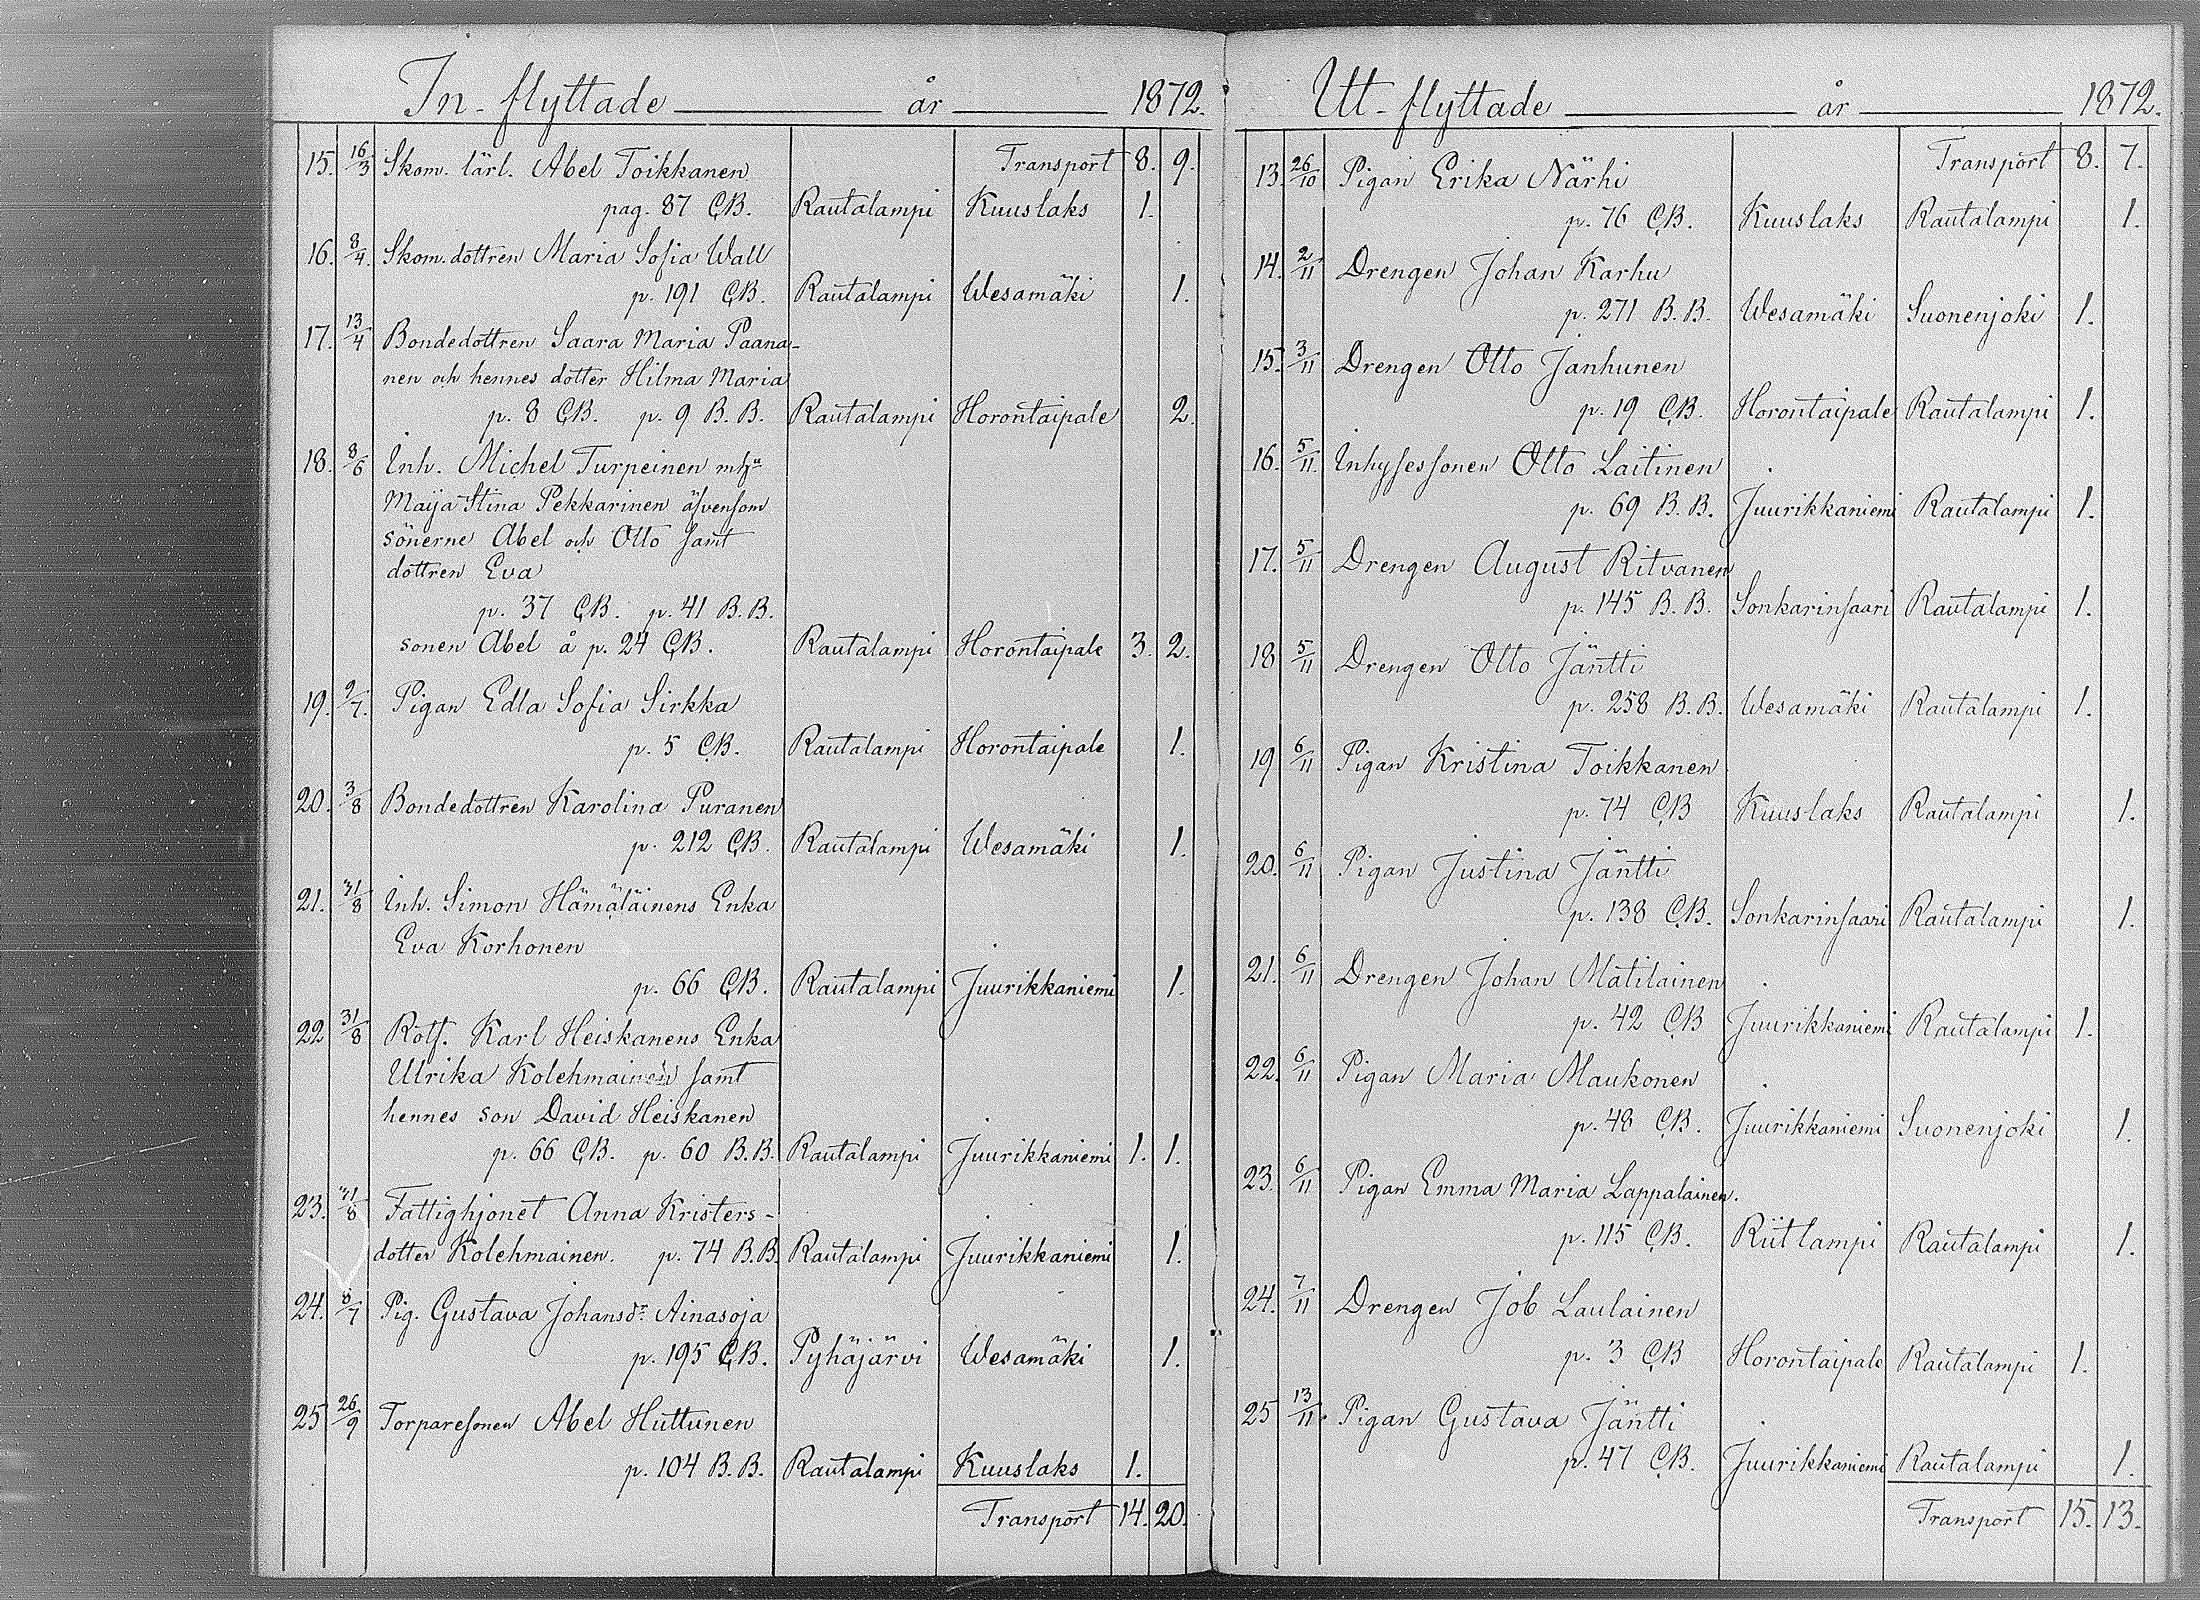 In-flyttade år 1872.
15. 16/3 Skom. lärl. Abel Toikkanen Transport 8. 9.
pag. 87 C.B. Rautalampi Kuuslaks 1.
16. 8/4. Skom. dottren Maria Sofia Wall
p. 191 C.B. Rautalampi Wesamäki 1.
17. 13/4 Bondedottren Saara Maria Paana-
nen och hennes dotter Hilma Maria
p. 8 C.B. p. 9 B.B. Rautalampi Horontaipale 2.
18. 8/6 Inh. Michel Turpeinen mh
Maija Stina Pekkarinen äfvensom
sönerne Abel och Otto samt
dottren Eva
p. 37 C.B. p. 41 B.B.
sonen Abel å p. 24 C.B. Rautalampi Horontaipale 3. 2.
19. 9/7. Pigan Edla Sofia Sirkka
p. 5 C.B. Rautalampi Horontaipale 1.
20. 3/8 Bondedottren Karolina Puranen
p. 212 C.B. Rautalampi Wesamäki 1.
21. 31/8 Inh. Simon Hämäläinens Enka
Eva Korhonen
p. 66 C.B. Rautalampi Juurikkaniemi 1.
22 31/8 Rotf. Karl Heiskanens Enka
Ulrika Kolehmainen samt
hennes son David Heiskanen
p. 66 C.B. p. 60 B.B. Rautalampi Juurikkaniemi 1. 1.
23. 31/8 Fattighjonet Anna Kristers-
dotter Kolehmainen. p. 74 B.B. Rautalampi Juurikkaniemi 1.
24. 8/7 Pig. Gustava Johansdr Ainasoja
p. 195 C.B. Pyhäjärvi Wesamäki 1.
25 26/9 Torparesonen Abel Huttunen
p. 104 B.B. Rautalampi Kuuslaks 1.
Transport 14. 20.
Ut-flyttade år 1872.
13. 26/10 Pigan Erika Närhi Transport 8. 7.
p. 76 C.B. Kuuslaks Rautalampi 1.
14. 2/11 Drengen Johan Karhu
p. 271 B.B. Wesamäki Suonenjoki 1.
15. 3/11 Drengen Otto Janhunen
p. 19 C.B. Horontaipale Rautalampi 1.
16. 5/11. Inhysessonen Otto Laitinen
p. 69 B.B. Juurikkaniemi Rautalampi 1.
17. 5/11 Drengen August Ritvanen
p. 145 B.B. Sonkarinsaari Rautalampi 1.
18 5/11 Drengen Otto Jäntti
p. 258 B.B. Wesamäki Rautalampi 1.
19 6/11 Pigan Kristina Toikkanen
p. 74 C.B Kuuslaks Rautalampi 1.
20. 6/11 Pigan Justina Jäntti
p. 138 C.B. Sonkarinsaari Rautalampi 1.
21. 6/11 Drengen Johan Matilainen
p. 42 C.B Juurikkaniemi Rautalampi 1.
22. 6/11 Pigan Maria Maukonen
p. 48 C.B. Juurikkaniemi Suonenjoki 1.
23. 6/11 Pigan Emma Maria Lappalainen.
p. 115 C.B. Riitlampi Rautalampi 1.
24. 7/11 Drengen Job Laulainen
p. 3 C.B Horontaipale Rautalampi 1.
25 13/11. Pigan Gustava Jäntti
p. 47 C.B. Juurikkaniemi Rautalampi 1.
Transport 15. 13.